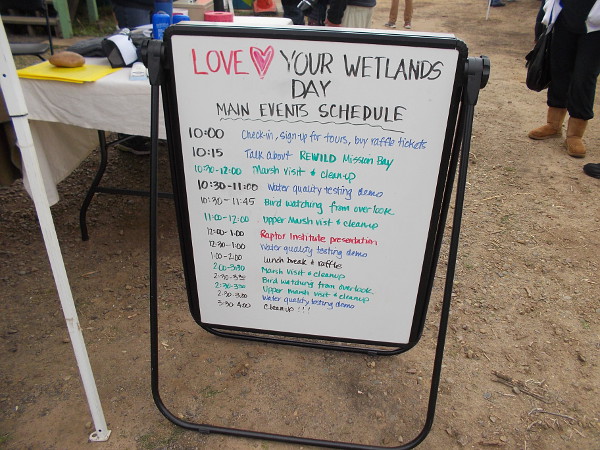 LOVE YOUR WETLANDS
DAY
MAIN EVENTS SCHEDULE
10:00 Check-in, sign-up for tours, buy raffle tickets
10:15 Talk about REWILD Mission Bay
10:30-12:00 Marsh visit & cleanup
10:30-11:00 Water quality testing demo
10:30-11:45 Bird watching from overlook
11:00-12:00 Upper Marsh visit & cleanup
12:00-1:00 Raptor Institute presentation
12:30-1:00 Water quality testing demo
1:00-2:00 Lunch break & raffle
2:00-3:30 Marsh visit & cleanup
2:30-3:30 Bird watching from overlook
2:30-3:30 Upper marsh visit & cleanup
2:30-3:00 Water quality testing demo
3:30-4:00 Cleanup!!!